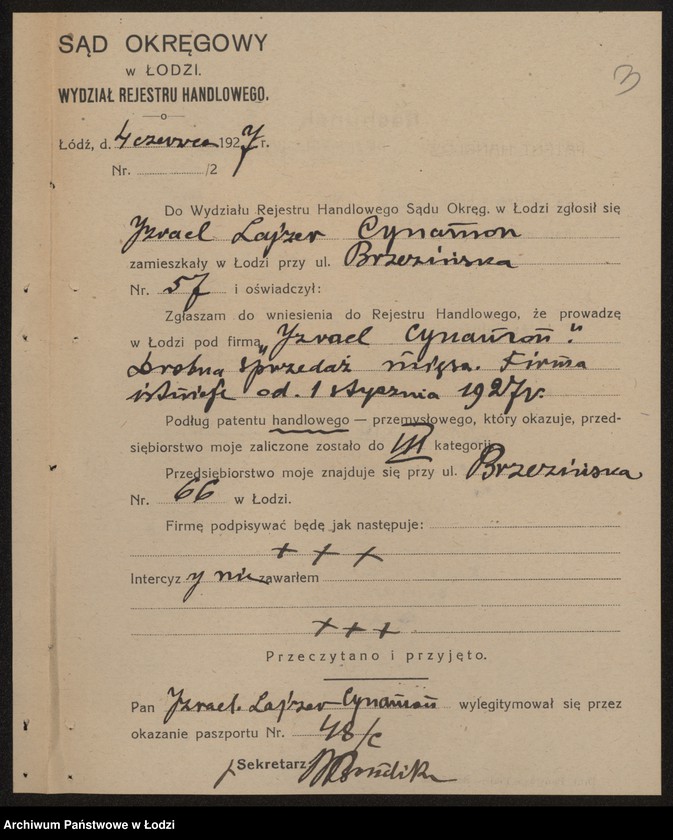 SĄD OKRĘGOWY
w ŁODZI.
WYDZIAŁ REJESTRU HANDLOWEGO.
3
Łódź, d. 4 czerwca 1927 r.
Nr. /2
Do Wydziału Rejestru Handlowego Sądu Okręg. w Łodzi zgłosił się
Yzrael Lajzer Cynamon
zamieszkały w Łodzi przy ul. Brzezińska
Nr. 57 i oświadczył:
Zgłaszam do wniesienia do Rejestru Handlowego, że prowadzę
w Łodzi pod firmą „Yzrael Cynamon".
Drobna sprzedaż mięsa. Firma
istnieje od 1 stycznia 1927 r.
Podług patentu handlowego — przemysłowego, który okazuje, przed-
siębiorstwo moje zaliczone zostało do III kategorji
Przedsiębiorstwo moje znajduje się przy ul. Brzezińska
Nr. 66 w Łodzi.
Firmę podpisywać będę jak następuje:
+ + +
Intercyzy nie zawarłem
+++
Przeczytano i przyjęto.
Pan Yzrael Lajzer Cynamon wylegitymował się przez
okazanie paszportu Nr. 48/c
Sekretarz
Archiwum Państwowe w Łodzi